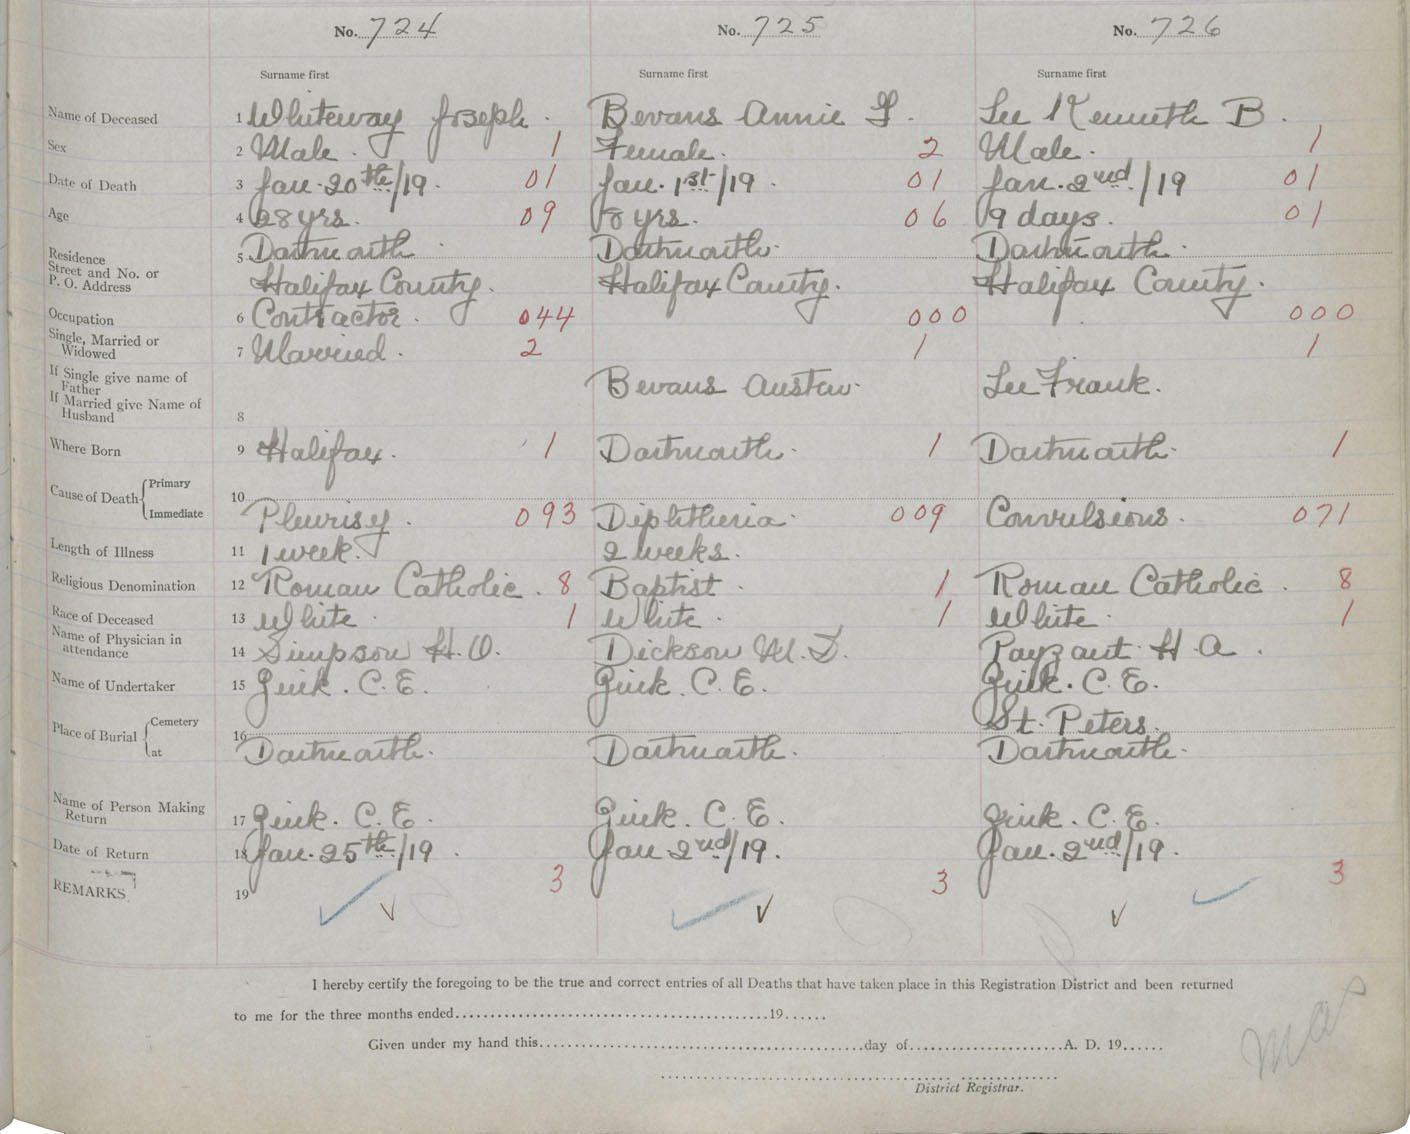 No. 724 No. 725 No. 726
Surname first Surname first Surname first
Name of Deceased 1 Whiteway Joseph . Bevans Annie . Lee Kenneth B .
Sex 2 Male . 1 Female . 2 Male . 1
Date of Death 3 Jan. 20th/19 . 01 Jan. 1st/19 . 01 Jan. 2nd/19 01
Age 4 28 yrs. 09 8 yrs. 06 9 days. 01
Residence 5 Dartmouth Dartmouth. Dartmouth.
Street and No. or
P. O. Address Halifax County. Halifax County. Halifax County.
Occupation 6 Contractor . 044 000 000
Single, Married or
Widowed 7 Married . 2 1 1
If Single give name of
Father Bevans Lee Frank.
If Married give Name of
Husband 8
Where Born 9 Halifax. 1 Dartmouth. 1 Dartmouth. 1
Cause of Death Primary 10
Immediate Pleurisy . 093 Diphtheria. 009 Convulsions. 071
Length of Illness 11 1 week. 2 weeks.
Religious Denomination 12 Roman Catholic . 8 Baptist . 1 Roman Catholic . 8
Race of Deceased 13 White . 1 White . 1 White . 1
Name of Physician in
attendance 14 Simpson H. O. Dickson M. Payzant. H. A .
Name of Undertaker 15 C. E. C. E. C. E.
Place of Burial Cemetery 16 St. Peters.
at Dartmouth. Dartmouth. Dartmouth.
Name of Person Making
Return 17 C. E. C. E. C. E.
Date of Return 18 Jan. 25th/19 . Jan 2nd/19. Jan. 2nd/19.
REMARKS 19 3 3 3
I hereby certify the foregoing to be the true and correct entries of all Deaths that have taken place in this Registration District and been returned
to me for the three months ended 19
Given under my hand this day of A. D. 19
District Registrar.